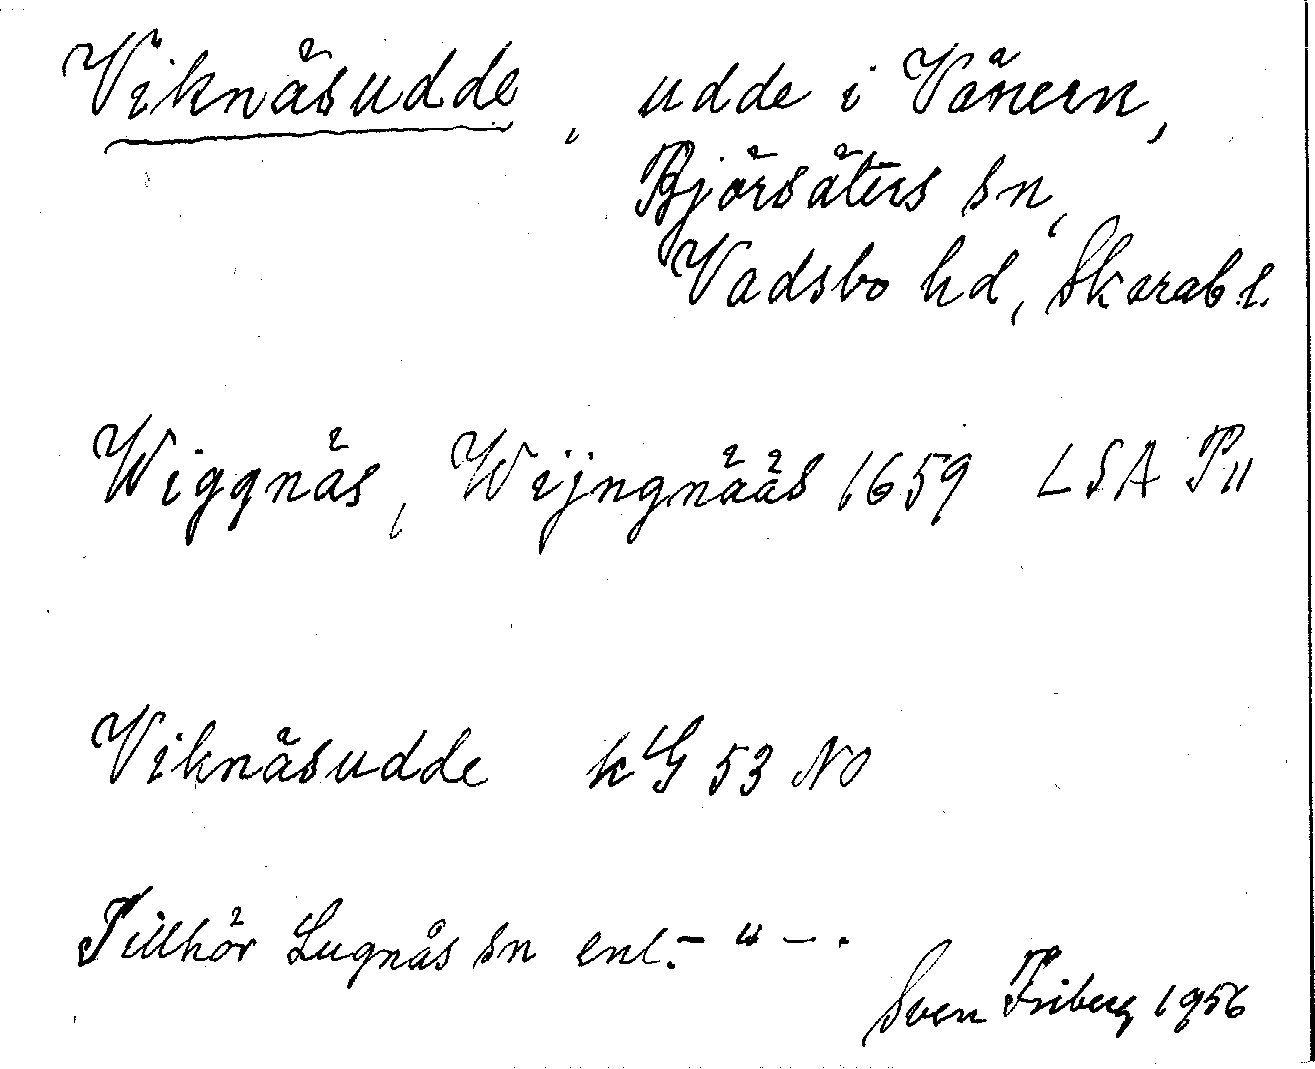 Viknäsudde, udde i Vänern,
Björsäters sn,
Vadsbo hd, Skarab. l.
Wiggnäs, Wijngnääs 1659 LSA P11
Viknäsudde kG 53 NO
Tillhör Lugnås sn enl. – " – .
Sven Friberg 1956